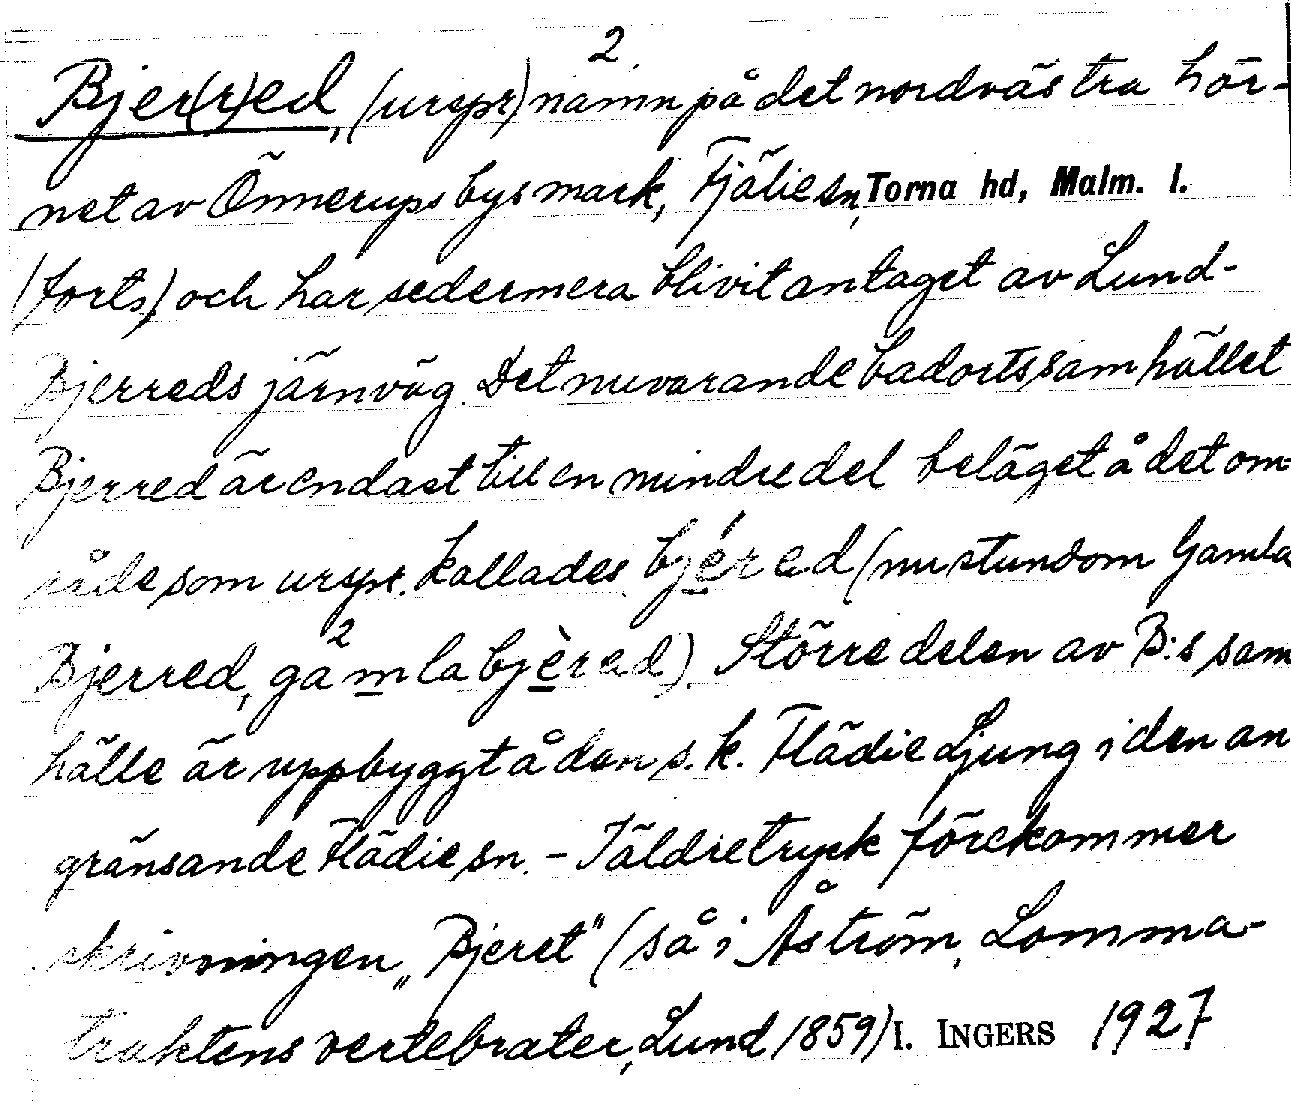 2.
Bjer(r)ed, (urspr) namn på det nordvästra hör-
net av Önnerups bys mark, Fjälie sn, Torna hd, Malm. l.
(forts) och har sedermera blivit antaget av Lund-
Bjerreds järnväg. Det nuvarande badortssamhället
Bjerred är endast till en mindre del beläget å det om-
råde som urspr. kallades bjéred (nu stundom Gamla
Bjerred, ga2mla bjèred). Större delen av B:s sam
hälle är uppbyggt å den s.k. Flädie Ljung i den an
gränsande Flädie sn. - I äldre tryck förekommer
skrivningen „Bjeret" (så i Åström, Lomma-
traktens vertebrater, Lund 1859) I. INGERS 1927